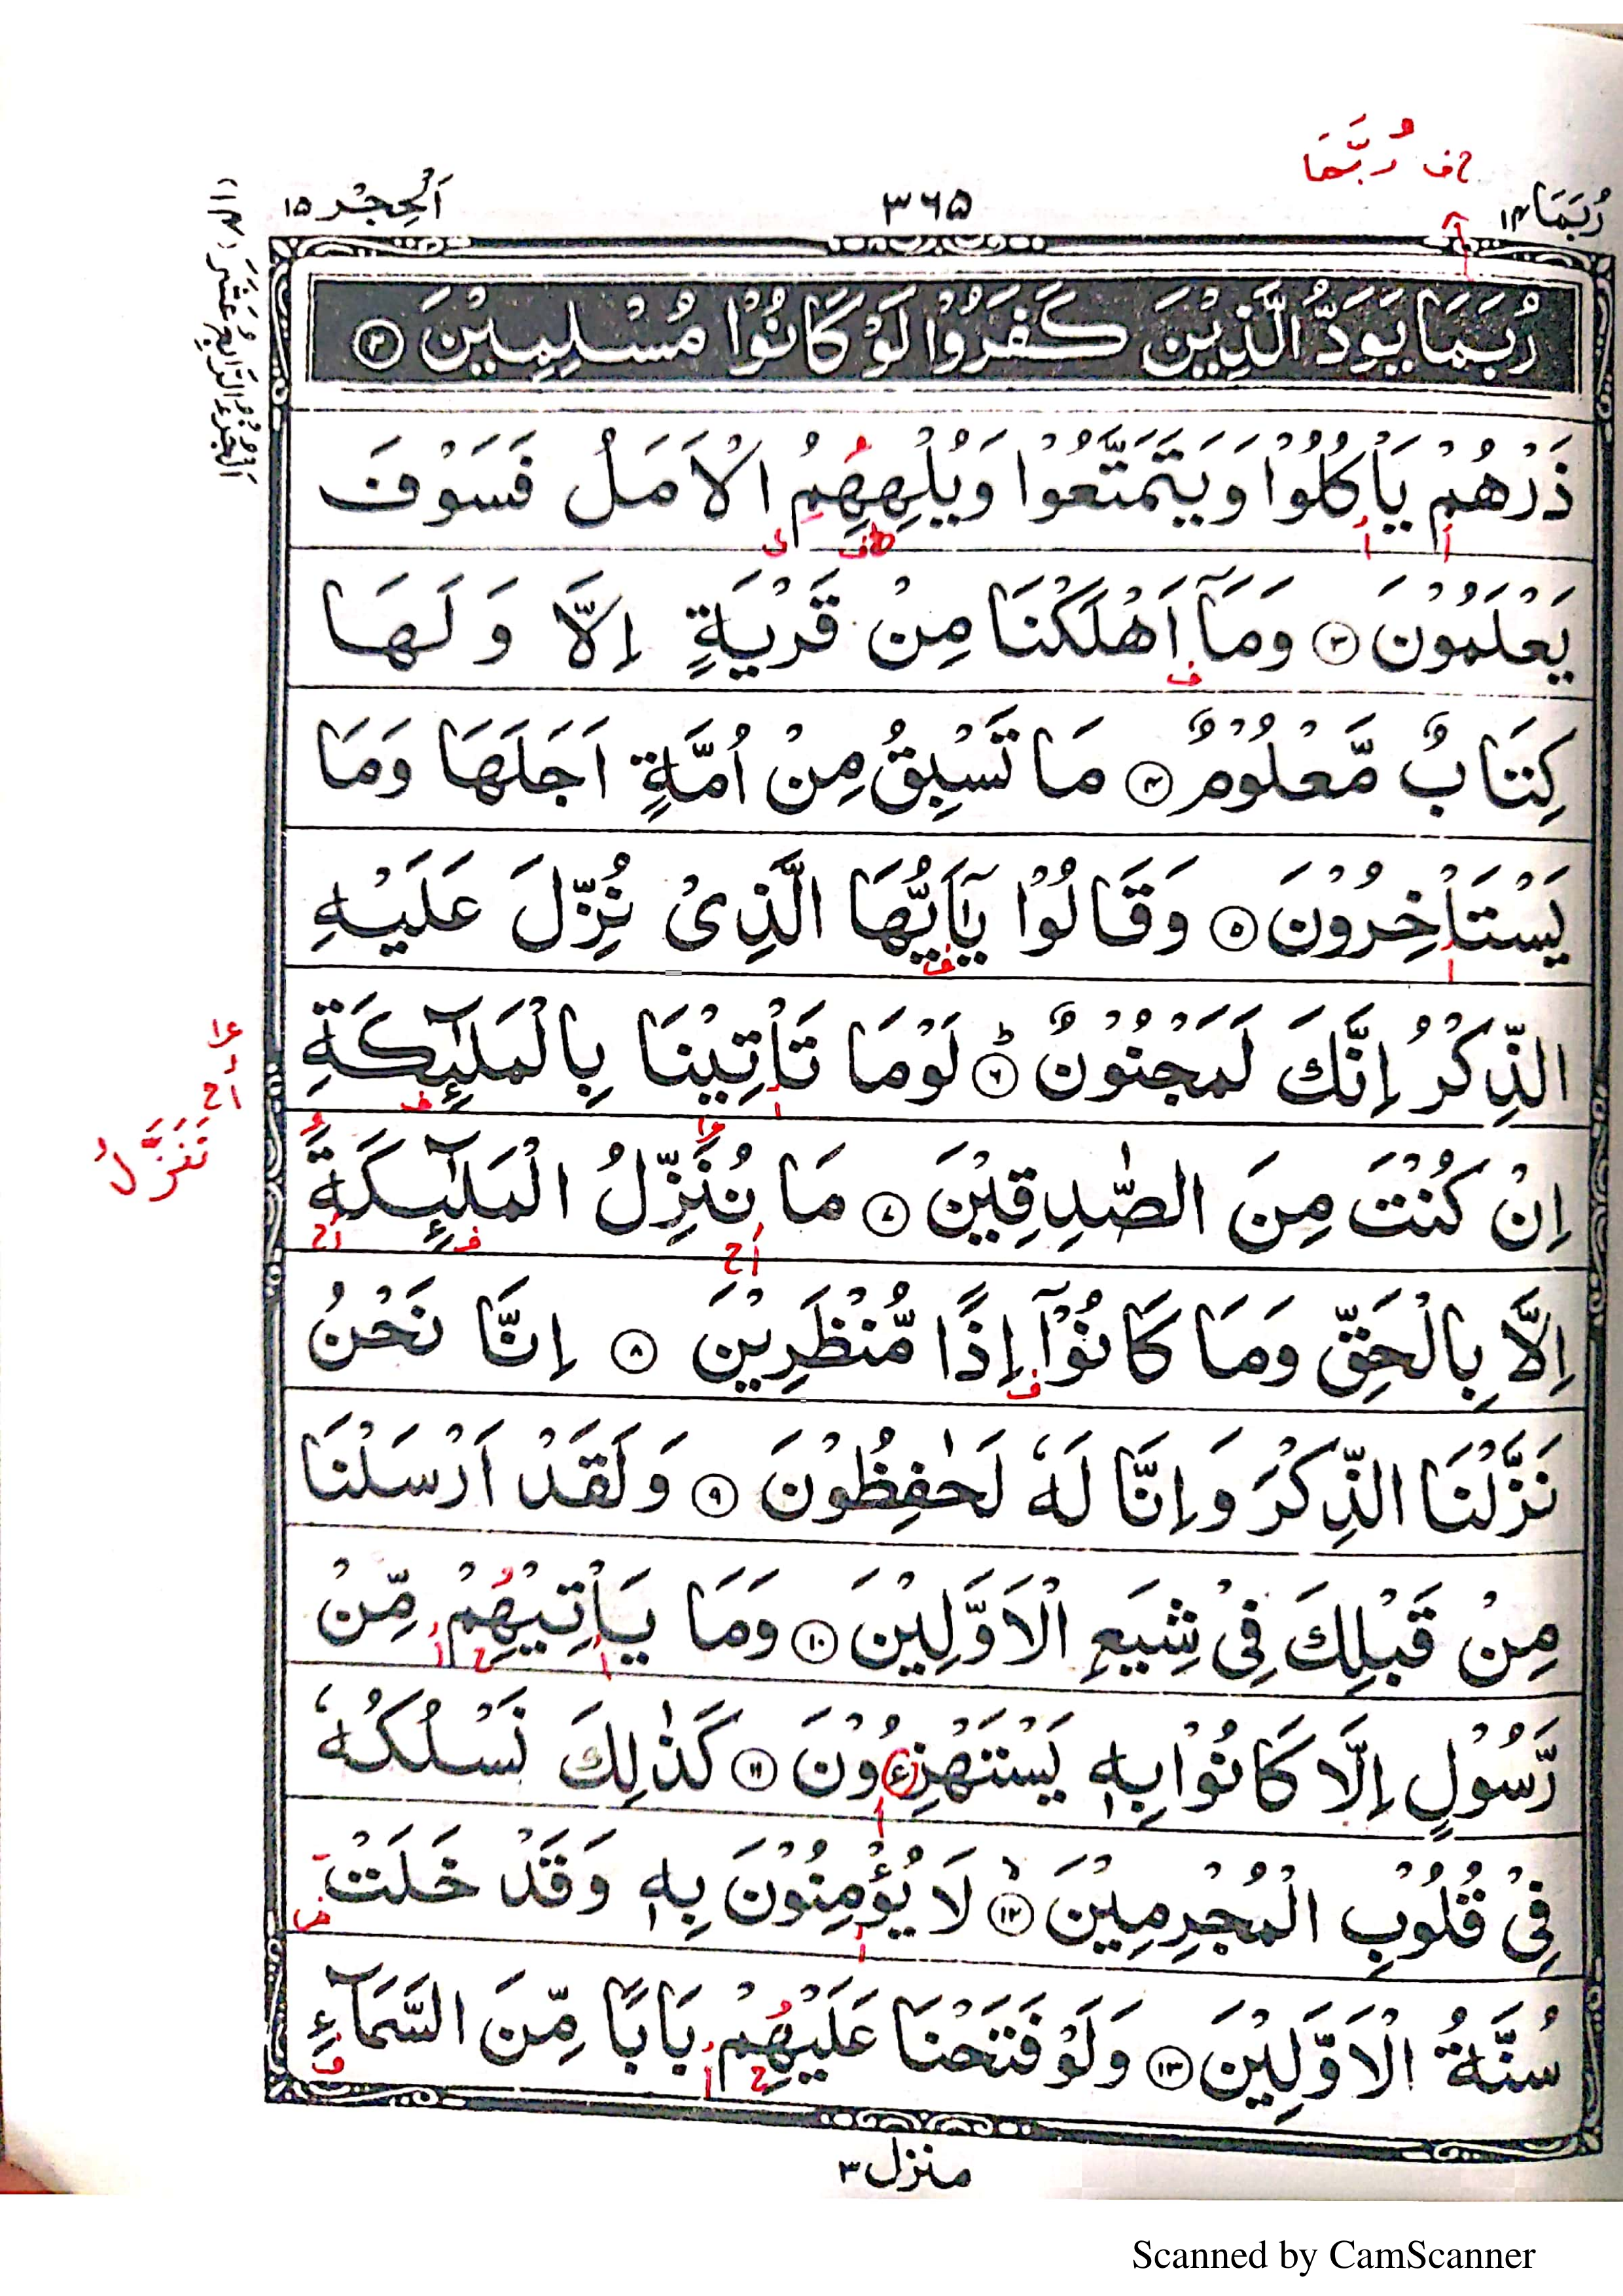 رُبَمَا ١٤
٣٦٥
اَلْحِجْر ١٥
رُبَّمَا
رُبَمَا يَوَدُّ الَّذِيْنَ كَفَرُوْا لَوْ كَانُوْا مُسْلِمِيْنَ ٢
ذَرْهُمْ يَاْكُلُوْا وَيَتَمَتَّعُوْا وَيُلْهِهِمُ الْاَمَلُ فَسَوْفَ
يَعْلَمُوْنَ ٣ وَمَآ اَهْلَكْنَا مِنْ قَرْيَةٍ اِلَّا وَلَهَا
كِتَابٌ مَّعْلُوْمٌ ٤ مَا تَسْبِقُ مِنْ اُمَّةٍ اَجَلَهَا وَمَا
يَسْتَاْخِرُوْنَ ٥ وَقَالُوْا يٰٓاَيُّهَا الَّذِىْ نُزِّلَ عَلَيْهِ
الذِّكْرُ اِنَّكَ لَمَجْنُوْنٌ ٦ لَوْمَا تَاْتِيْنَا بِالْمَلٰٓئِكَةِ
اِنْ كُنْتَ مِنَ الصّٰدِقِيْنَ ٧ مَا نُنَزِّلُ الْمَلٰٓئِكَةَ
تَنَزَّلُ
اِلَّا بِالْحَقِّ وَمَا كَانُوْٓا اِذًا مُّنْظَرِيْنَ ٨ اِنَّا نَحْنُ
نَزَّلْنَا الذِّكْرَ وَاِنَّا لَهٗ لَحٰفِظُوْنَ ٩ وَلَقَدْ اَرْسَلْنَا
مِنْ قَبْلِكَ فِىْ شِيَعِ الْاَوَّلِيْنَ ١٠ وَمَا يَاْتِيْهِمْ مِّنْ
رَّسُوْلٍ اِلَّا كَانُوْا بِهٖ يَسْتَهْزِءُوْنَ ١١ كَذٰلِكَ نَسْلُكُهٗ
فِىْ قُلُوْبِ الْمُجْرِمِيْنَ ١٢ لَا يُؤْمِنُوْنَ بِهٖ وَقَدْ خَلَتْ
سُنَّةُ الْاَوَّلِيْنَ ١٣ وَلَوْ فَتَحْنَا عَلَيْهِمْ بَابًا مِّنَ السَّمَآءِ
منزل ٣
Scanned by CamScanner